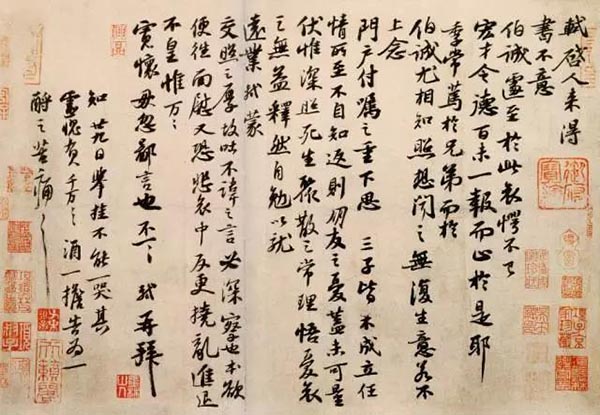 軾啓人來得
書不意
伯誠遽至於此哀愕不已
宏才令德百未一報而止於是耶
季常篤於兄弟而於
伯誠尤相知照想聞之無復生意若不
上念
門户付囑之重下思三子皆不成立任
情所至不自知返則朋友之憂蓋未可量
伏惟深照死生聚散之常理悟憂哀
之無益釋然自勉以就
遠業軾蒙
交照之厚故吐不諱之言必深察也本欲
便往面慰又恐悲哀中反更撓亂進退
不皇惟万〻
寬懷毋忽鄙言也不一〻軾再拜
知廿九日舉挂不能一哭其
靈愧負千万〻酒一擔告為一
酹之苦痛〻〻